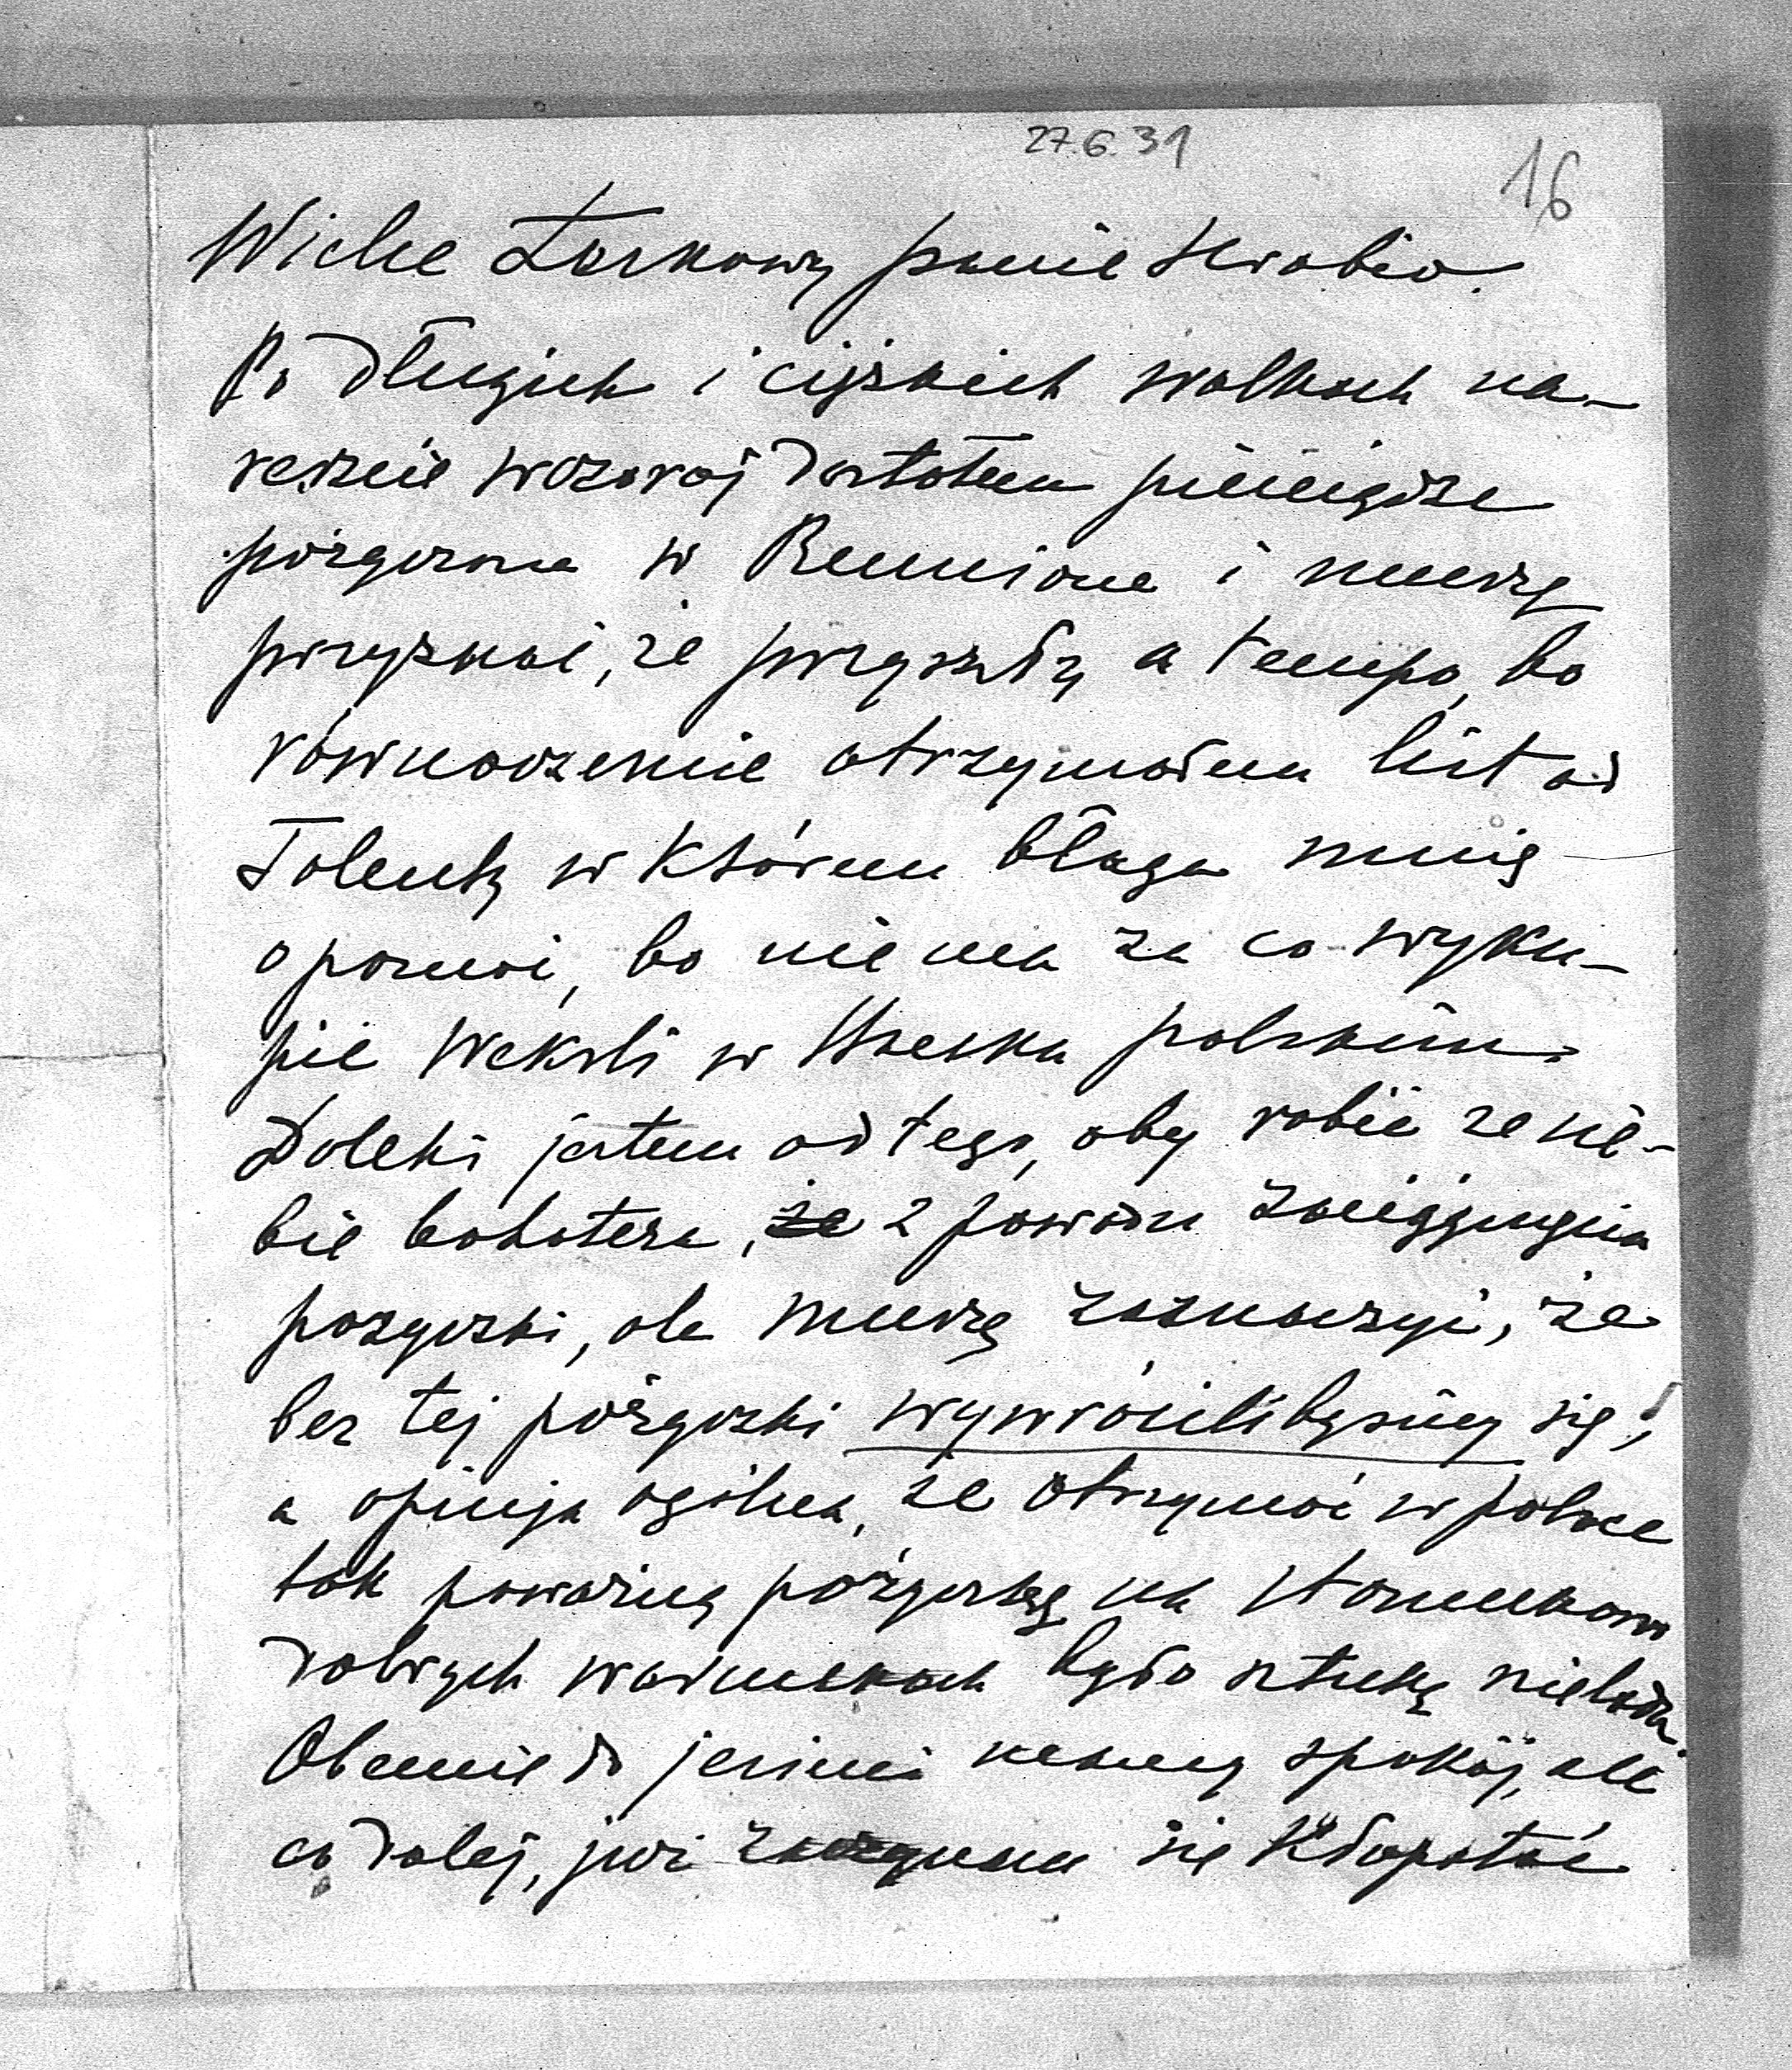 27.6.31
16
Wielce Łaskawy panie Hrabio.
Po długich i ciężkich walkach na-
reszcie wczoraj dostałem pieniądze
pożyczone w Reunione i muszę
przyznać, że przyszły a tempo, bo
równocześnie otrzymałem list od
w którem błaga mnię
o pomoc, bo nie ma za co wyku-
pić weksli w Banku polskim.
Daleki jestem od tego, aby robić ze sie-
bie bohatera, że z powodu zaciągnięcia
pożyczki, ale muszę zaznaczyć, że
bez tej pożyczki wywrócilibyśmy się,
a opinja ogólna, że otrzymać w polsce
tak poważną pożyczkę na stosunkowo
dobrych warunkach było sztuką nielada.
Obecnie do jesieni mamy spokój, ale
co dalej, już zaczynam się kłopotać